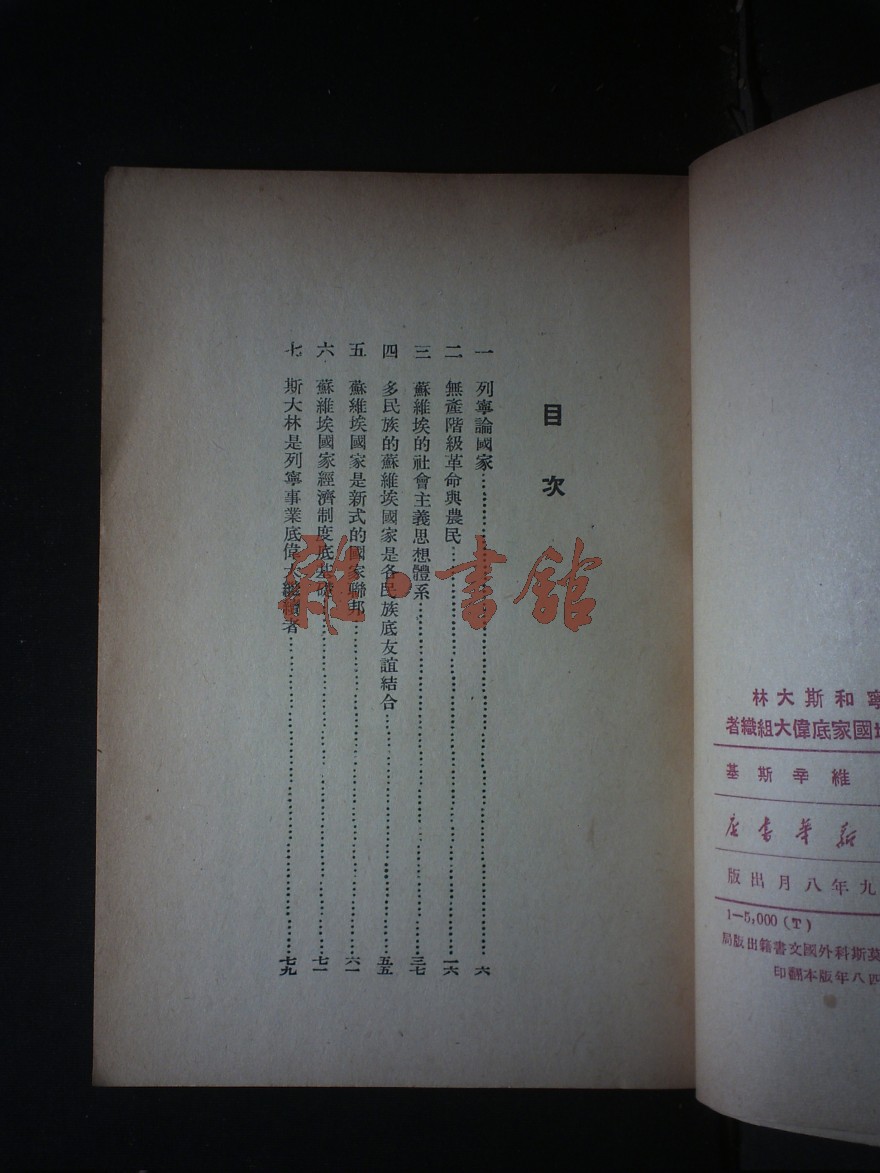 目次
一 列寧論國家……六
二 無產階級革命與農民……一六
三 蘇維埃的社會主義思想體系……三七
四 多民族的蘇維埃國家是各民族底友誼結合……五五
五 蘇維埃國家是新式的國家聯邦……六一
六 蘇維埃國家經濟制度底基礎……七一
七 斯大林是列寧事業底偉大繼續者……七九
雜·書館
寧和斯大林
國家底偉大組織者
維辛斯基
新華書店
九年八月出版
1—5,000(T)
莫斯科外國文書籍出版局
四八年版本翻印